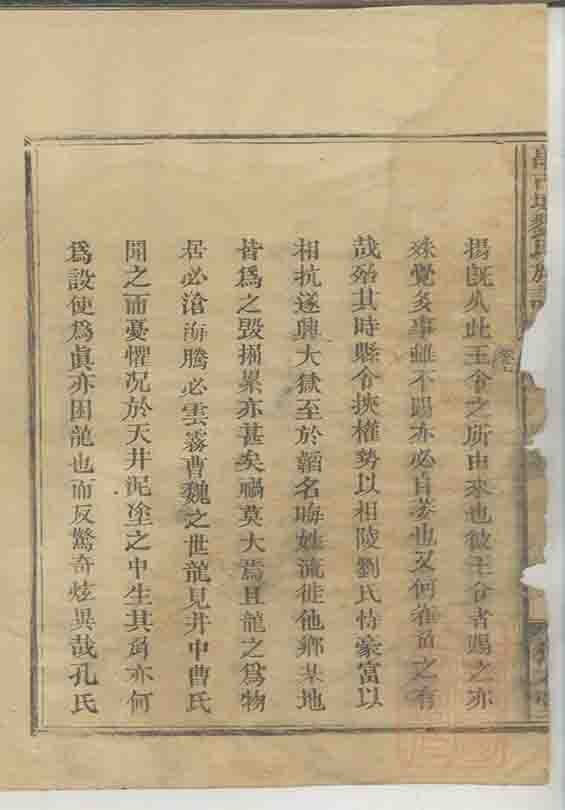 劉氏族譜
揚旣久此王令之所由來也彼王令者賜之亦
殊覺多事雖不賜亦必自萎也又何崔角之有
哉殆其時縣令挾權勢以相陵劉氏恃豪富以
相抗遂興大獄至於韜名晦姓流徙他鄉某地
皆爲之毀掘累亦甚矣禍莫大焉且龍之爲物
居必滄海騰必雲霧曹魏之世龍見井中曹氏
聞之而憂懼況於天井泥塗之中生其角亦何
爲設使爲眞亦困龍也而反驚奇炫異哉孔氏